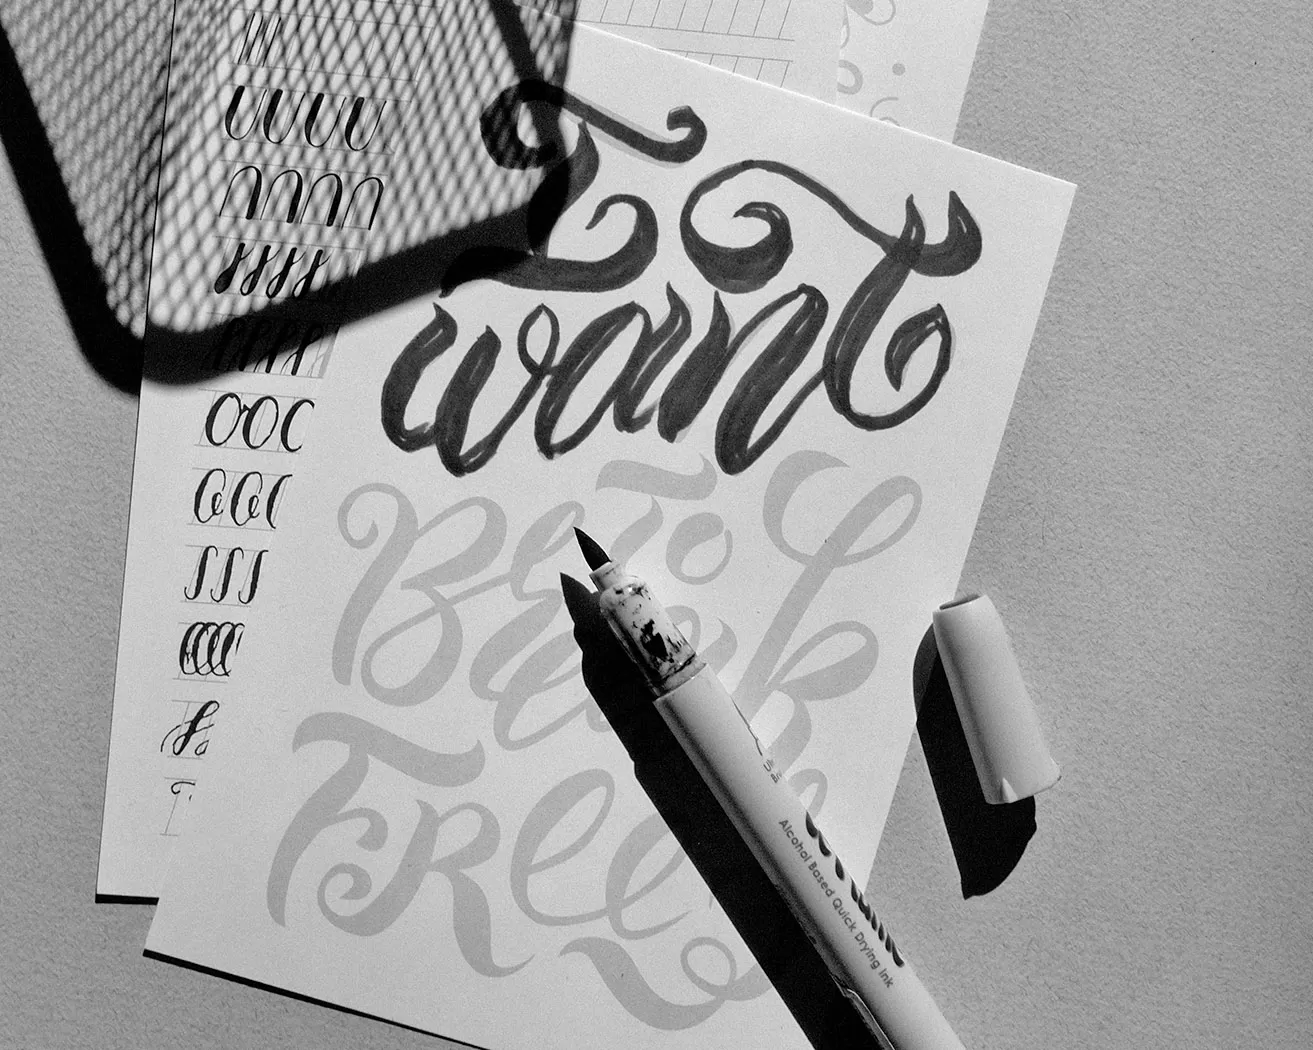 I
want
to
Break
Free
Alcohol Based Quick Drying Ink